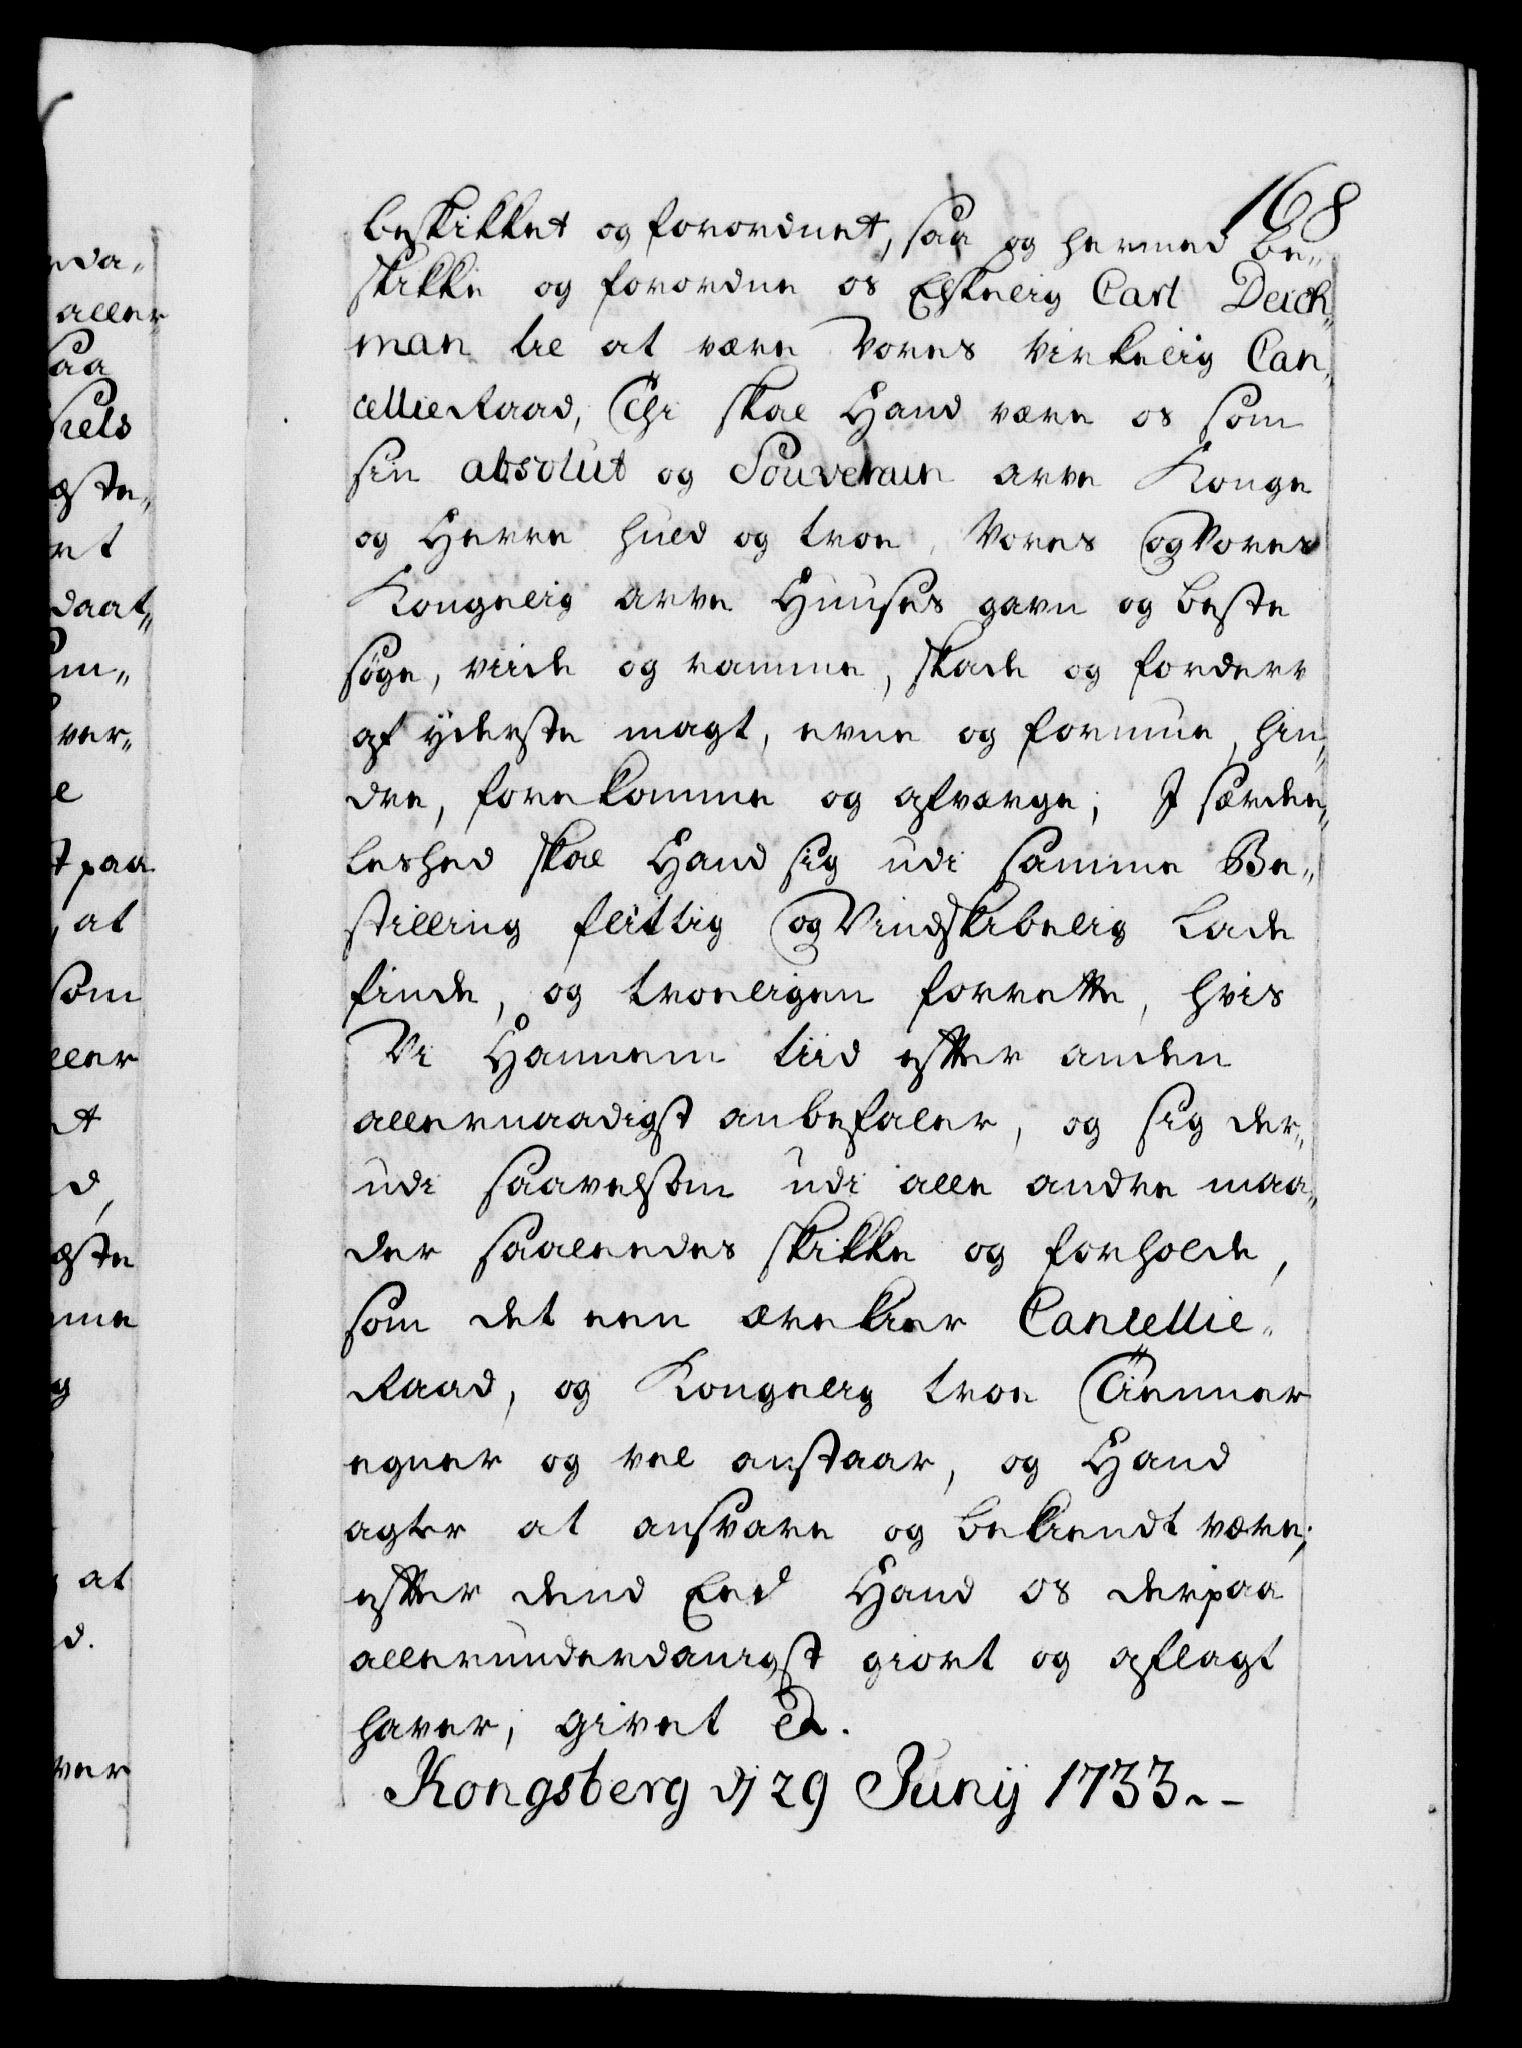 168
beskikket og forordnet, saa og hermed be„
skikke og forordne os Elskelig Carl Deich„
man til at være Vores Virkelig Can„
cellie Raad, Thi skal Hand være os som
sin absolut og Souverain arve Konge
og Herre huld og troe, Vores og Vores
Kongelig arve Huuses gavn og beste
søge, viide og ramme, skade og forderv
af yderste magt, evne og formue, hin„
dre, forekomme og afværge; I særde„
leshed skal Hand sig udi samme Be„
stilling flittig og Vindskibelig lade
finde, og troeligen forrette, hvis
Vi Hannem tiid efter anden
allernaadigst anbefaler, og sig der„
udi saavelsom udi alle andre maa„
der saaleedes skikke og forholde,
som det een ærekier Cancellie„
Raad, og Kongelig troe Tienner
egner og vel anstaar, og Hand
agter at ansvare og bekiendt være;
efter dend Eed Hand os derpaa
allerunderdanigst giort og aflagt
haver, givet &.
Kongsberg d/ 29 Junij 1733.
rda„
aller
saa
kels
æste„
et
daat„
m„
ver„
e
t paa
, at
som
ller
et
d,
æste
mme
g
, at
d.
ver